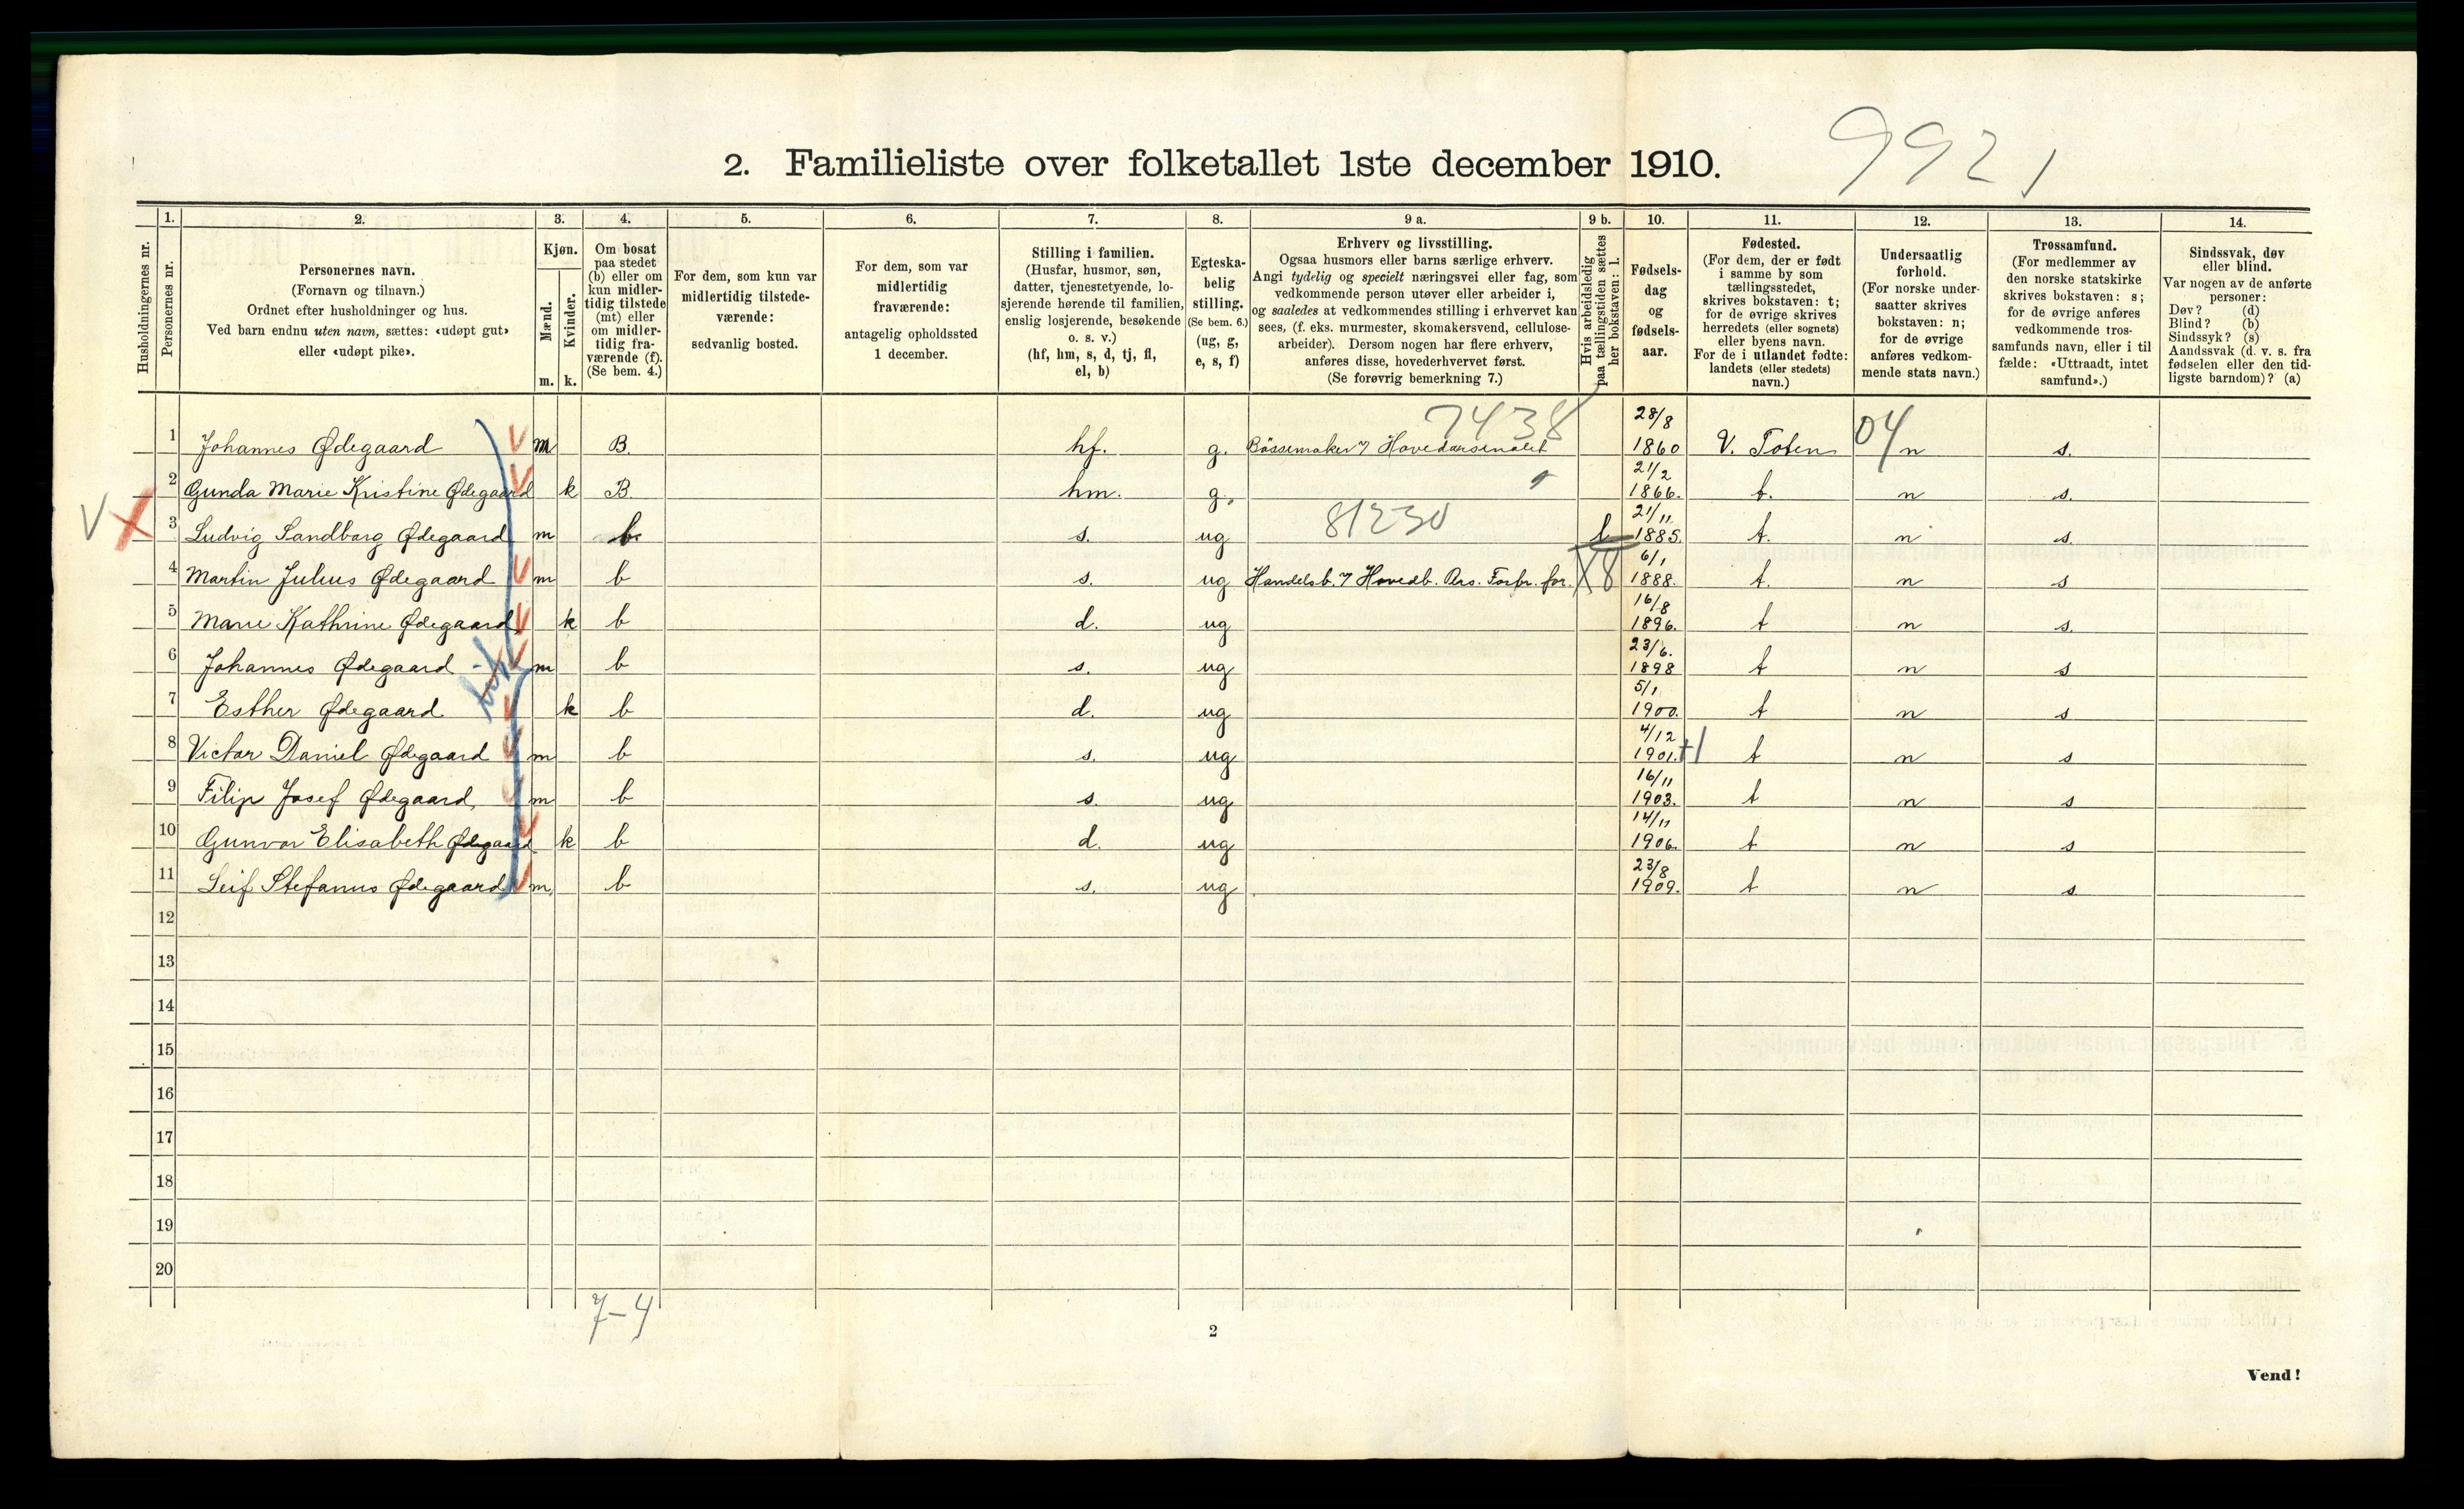 9921
2. Familieliste over folketallet 1ste december 1910.
Husholdningernes nr.
1.
Personernes nr.
2.
Personernes navn.
(Fornavn og tilnavn.)
Ordnet efter husholdninger og hus.
Ved barn endnu uten navn, sættes: «udøpt gut»
eller «udøpt pike».
3.
Kjøn.
Mænd.
m.
Kvinder.
k.
4.
Om bosat
paa stedet
(b) eller om
kun midler-
tidig tilstede
(mt) eller
om midler-
tidig fra-
værende (f).
(Se bem. 4.)
5.
For dem, som kun var
midlertidig tilstede-
værende:
sedvanlig bosted.
6.
For dem, som var
midlertidig
fraværende:
antagelig opholdssted
1 december.
7.
Stilling i familien.
(Husfar, husmor, søn,
datter, tjenestetyende, lo-
sjerende hørende til familien,
enslig losjerende, besøkende
o. s. v.)
(hf, hm, s, d, tj, fl,
el, b)
8.
Egteska-
belig
stilling.
(Se bem. 6.)
(ug, g,
e, s, f)
9 a.
Erhverv og livsstilling.
Ogsaa husmors eller barns særlige erhverv.
Angi tydelig og specielt næringsvei eller fag, som
vedkommende person utøver eller arbeider i,
og saaledes at vedkommendes stilling i erhvervet kan
sees, (f. eks. murmester, skomakersvend, cellulose-
arbeider). Dersom nogen har flere erhverv,
anføres disse, hovederhvervet først.
(Se forøvrig bemerkning 7.)
9 b.
Hvis arbeidsledig
paa tællingstiden sættes
her bokstaven: l.
10.
Fødsels-
dag
og
fødsels-
aar.
11.
Fødested.
(For dem, der er født
i samme by som
tællingsstedet,
skrives bokstaven: t;
for de øvrige skrives
herredets (eller sognets)
eller byens navn.
For de i utlandet fødte:
landets (eller stedets)
navn.)
12.
Undersaatlig
forhold.
(For norske under-
saatter skrives
bokstaven: n;
for de øvrige
anføres vedkom-
mende stats navn.)
13.
Trossamfund.
(For medlemmer av
den norske statskirke
skrives bokstaven: s;
for de øvrige anføres
vedkommende tros-
samfunds navn, eller i til
fælde: «Uttraadt, intet
samfund».)
14.
Sindssvak, døv
eller blind.
Var nogen av de anførte
personer:
Døv? (d)
Blind? (b)
Sindssyk? (s)
Aandssvak (d. v. s. fra
fødselen eller den tid-
ligste barndom)? (a)
7438
1 Johannes Ødegaard m B. hf. g. Bössemaker v/ Hovedarsenalet 28/8 1860 V. Toten 04 n s.
2 Gunda Marie Kristine Ødegaard k B. hm. g. 21/2 1866. t. n s.
V X 3 Ludvig Sandborg Ødegaard m b. s. ug 81230 l 21/11 1885. t. n s
4 Martin Julius Ødegaard m b s. ug Handelsb. v/ Hovedb. Ars. Forbr. for. X8 6/1 1888. t. n s
5 Marie Kathrine Ødegaard k b d. ug 16/8 1896. t n s.
6 Johannes Ødegaard m b s. ug 23/6. 1898 t n s
7 Esther Ødegaard k b d. ug 5/1 1900. t n s
8 Victor Daniel Ødegaard m b s. ug 4/12 1901. +1 t n s
9 Filip Josef Ødegaard, m b s. ug 16/11 1903. t n s
10 Gunvor Elisabeth Ødegaard k b d. ug 14/11 1906. t n s
11 Leif Stefanus Ødegaard m. b s. ug 23/8 1909. t n s
12
13
14
15
16
17
18
19
20
7-4
2
Vend!